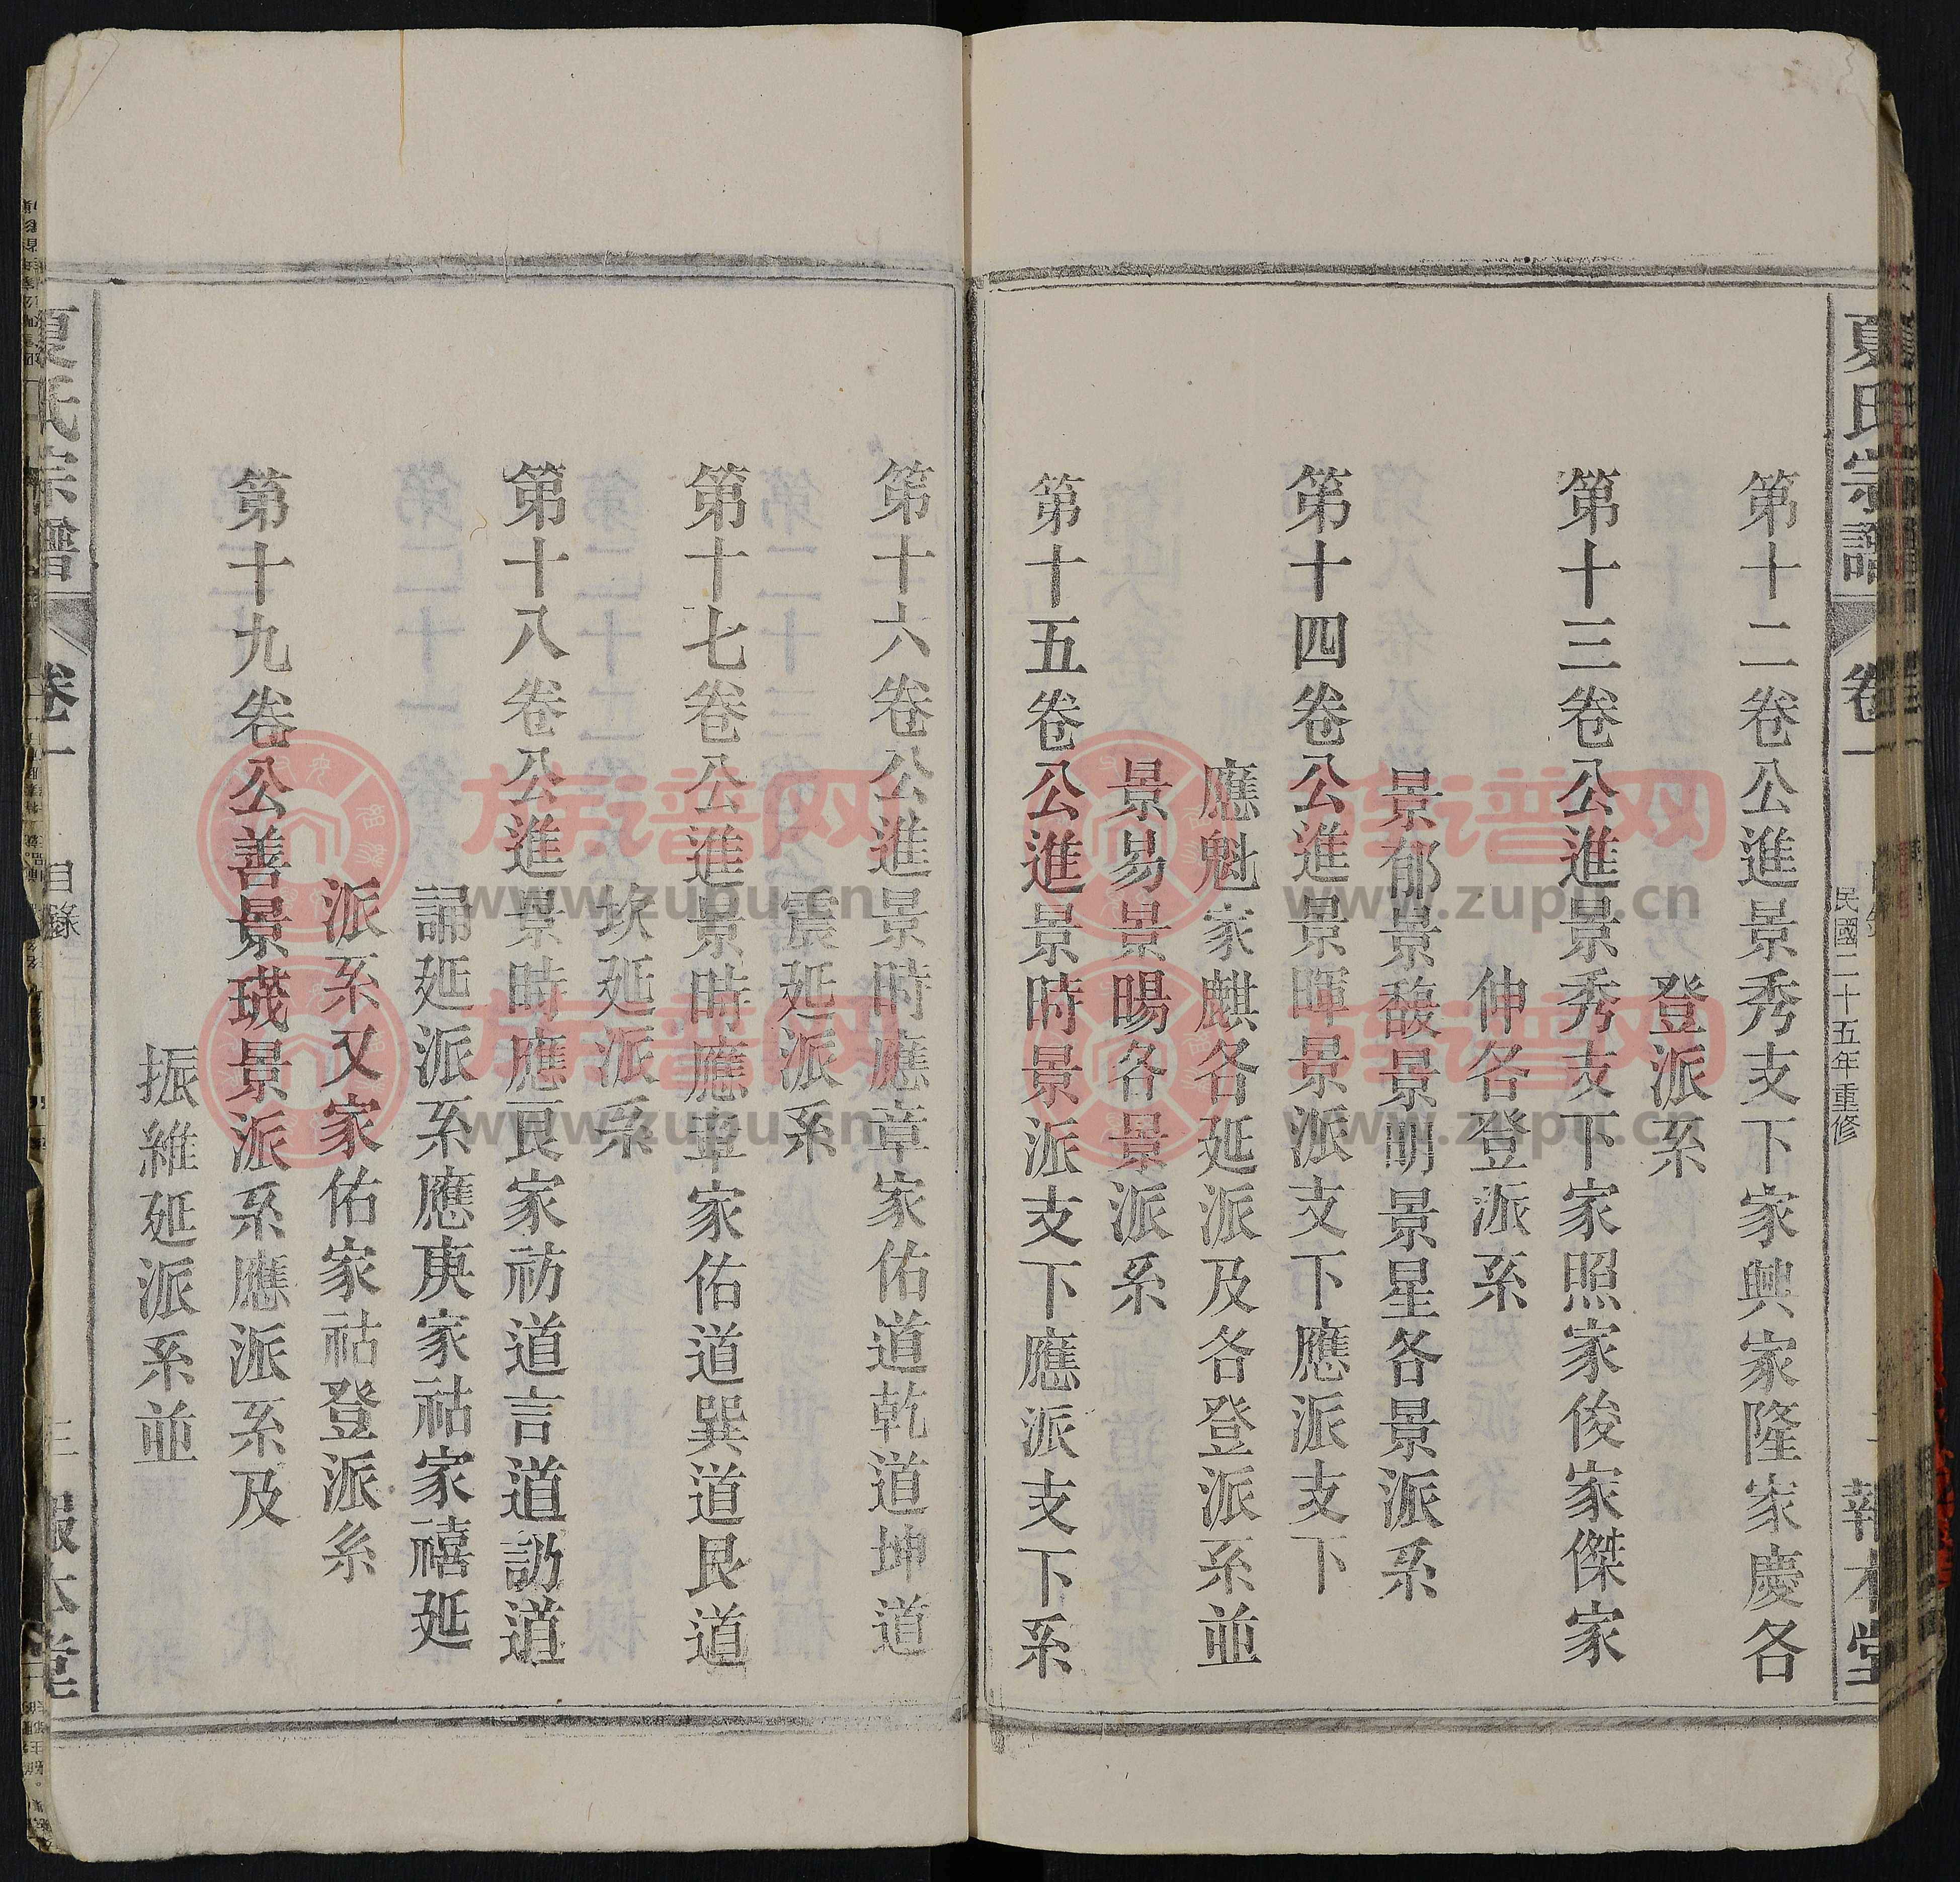 夏氏宗譜 卷一
民國二十五年重修
報本堂
第十二卷公進景秀支下家興家隆家慶各
登派系
第十三卷公進景秀支下家照家俊家傑家
仲各登派系
景郁景馥景明景星各景派系
第十四卷公進景暉景派支下應派支下
應魁家麒各延派及各登派系並
景易景暘各景派系
第十五卷公進景時景派支下應派支下系
第十六卷公進景時應章家佑道乾道坤道
震延派系
第十七卷公進景時應章家佑道巽道艮道
坎延派系
第十八卷公進景時應艮家祊道言道訒道
誦延派系應庚家祜家禧延
派系又家佑家祜登派系
第十九卷公善景璣景派系應派系及
振維延派系並
夏氏宗譜 卷一 目錄 三 報本堂
族谱网
www.zupu.cn
族谱网
www.zupu.cn
族谱网
www.zupu.cn
族谱网
www.zupu.cn